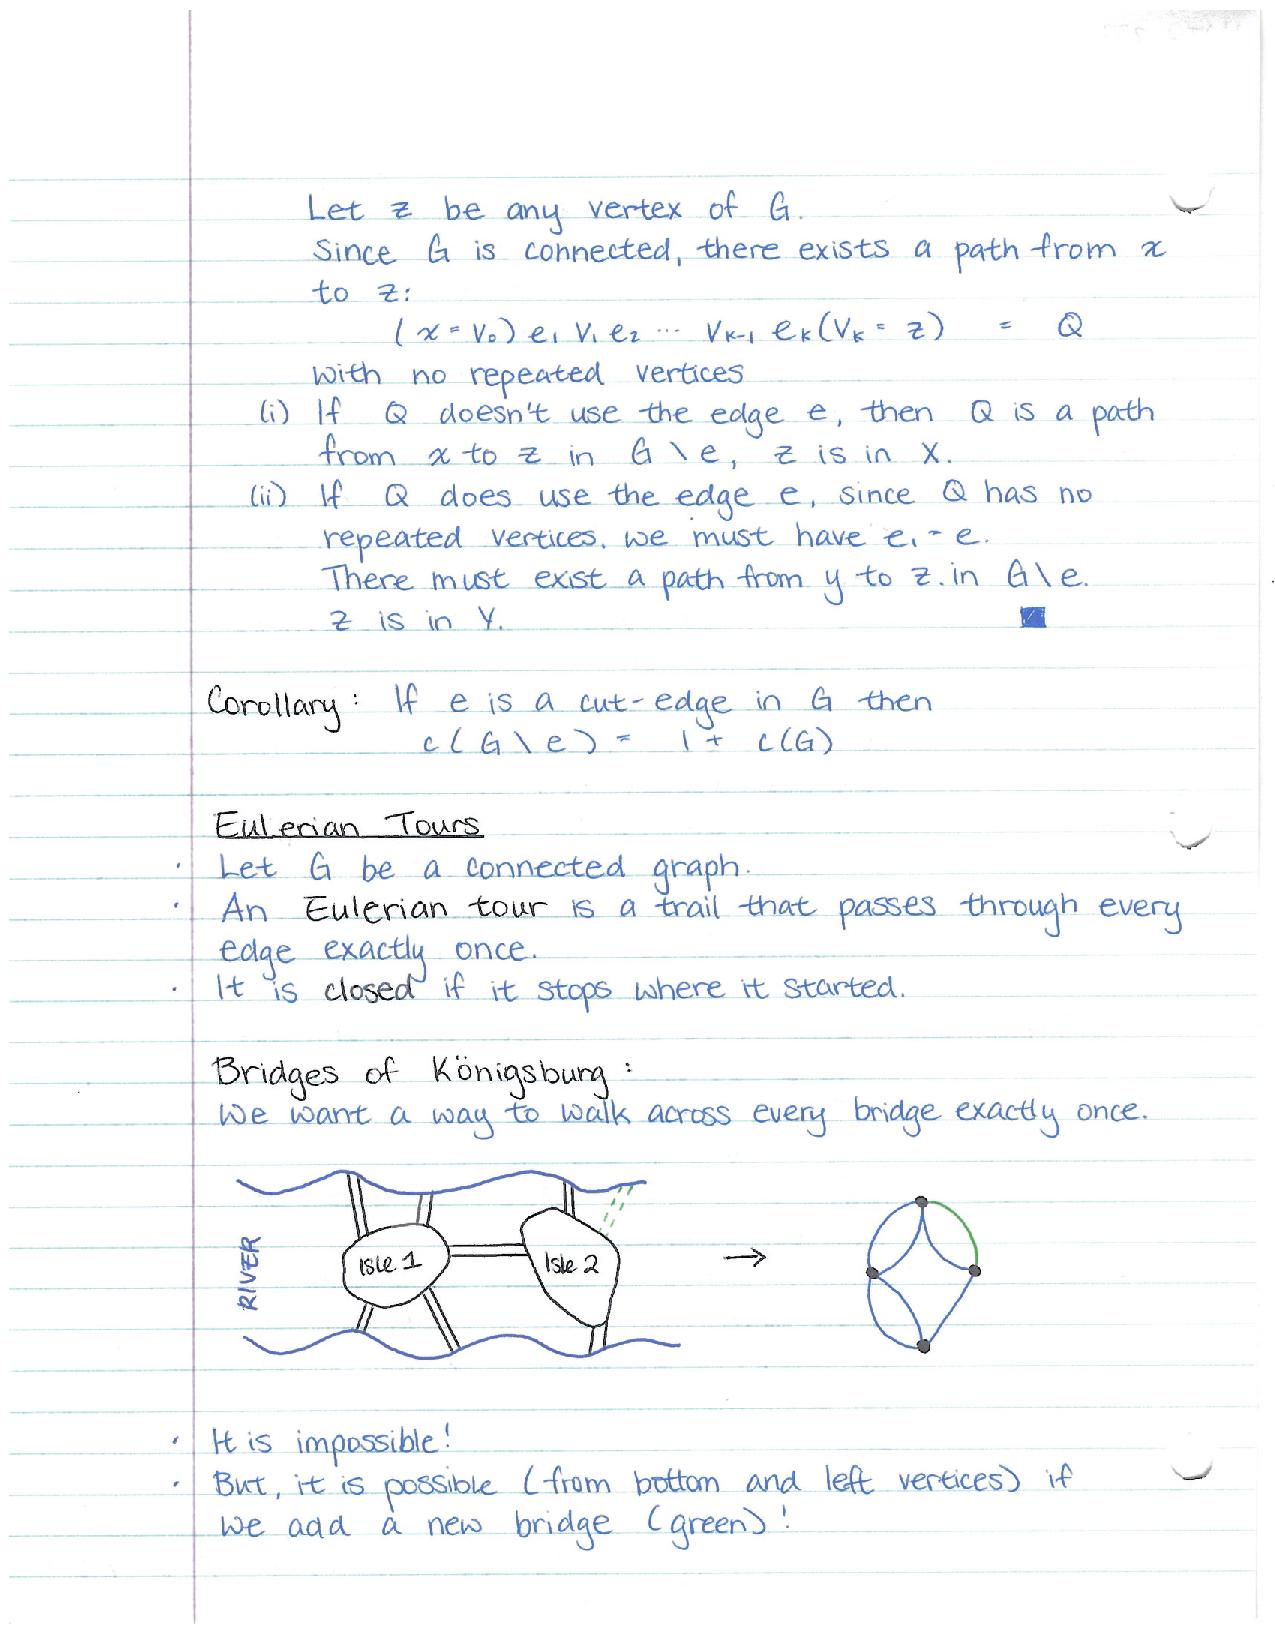 Let z be any vertex of G.
Since G is connected, there exists a path from x
to z:
(x = v₀) e₁ v₁ e₂ ... vₖ₋₁ eₖ (vₖ = z) = Q
with no repeated vertices
(i) If Q doesn't use the edge e, then Q is a path
from x to z in G \ e, z is in X.
(ii) If Q does use the edge e, since Q has no
repeated vertices, we must have e₁ = e.
There must exist a path from y to z in G\e.
z is in Y.
Corollary: If e is a cut-edge in G then
c(G \ e) = 1 + c(G)
Eulerian Tours
· Let G be a connected graph.
· An Eulerian tour is a trail that passes through every
edge exactly once.
· It is closed if it stops where it started.
Bridges of Königsburg:
We want a way to walk across every bridge exactly once.
RIVER
Isle 1
Isle 2
→
· It is impossible!
· But, it is possible (from bottom and left vertices) if
we add a new bridge (green)!